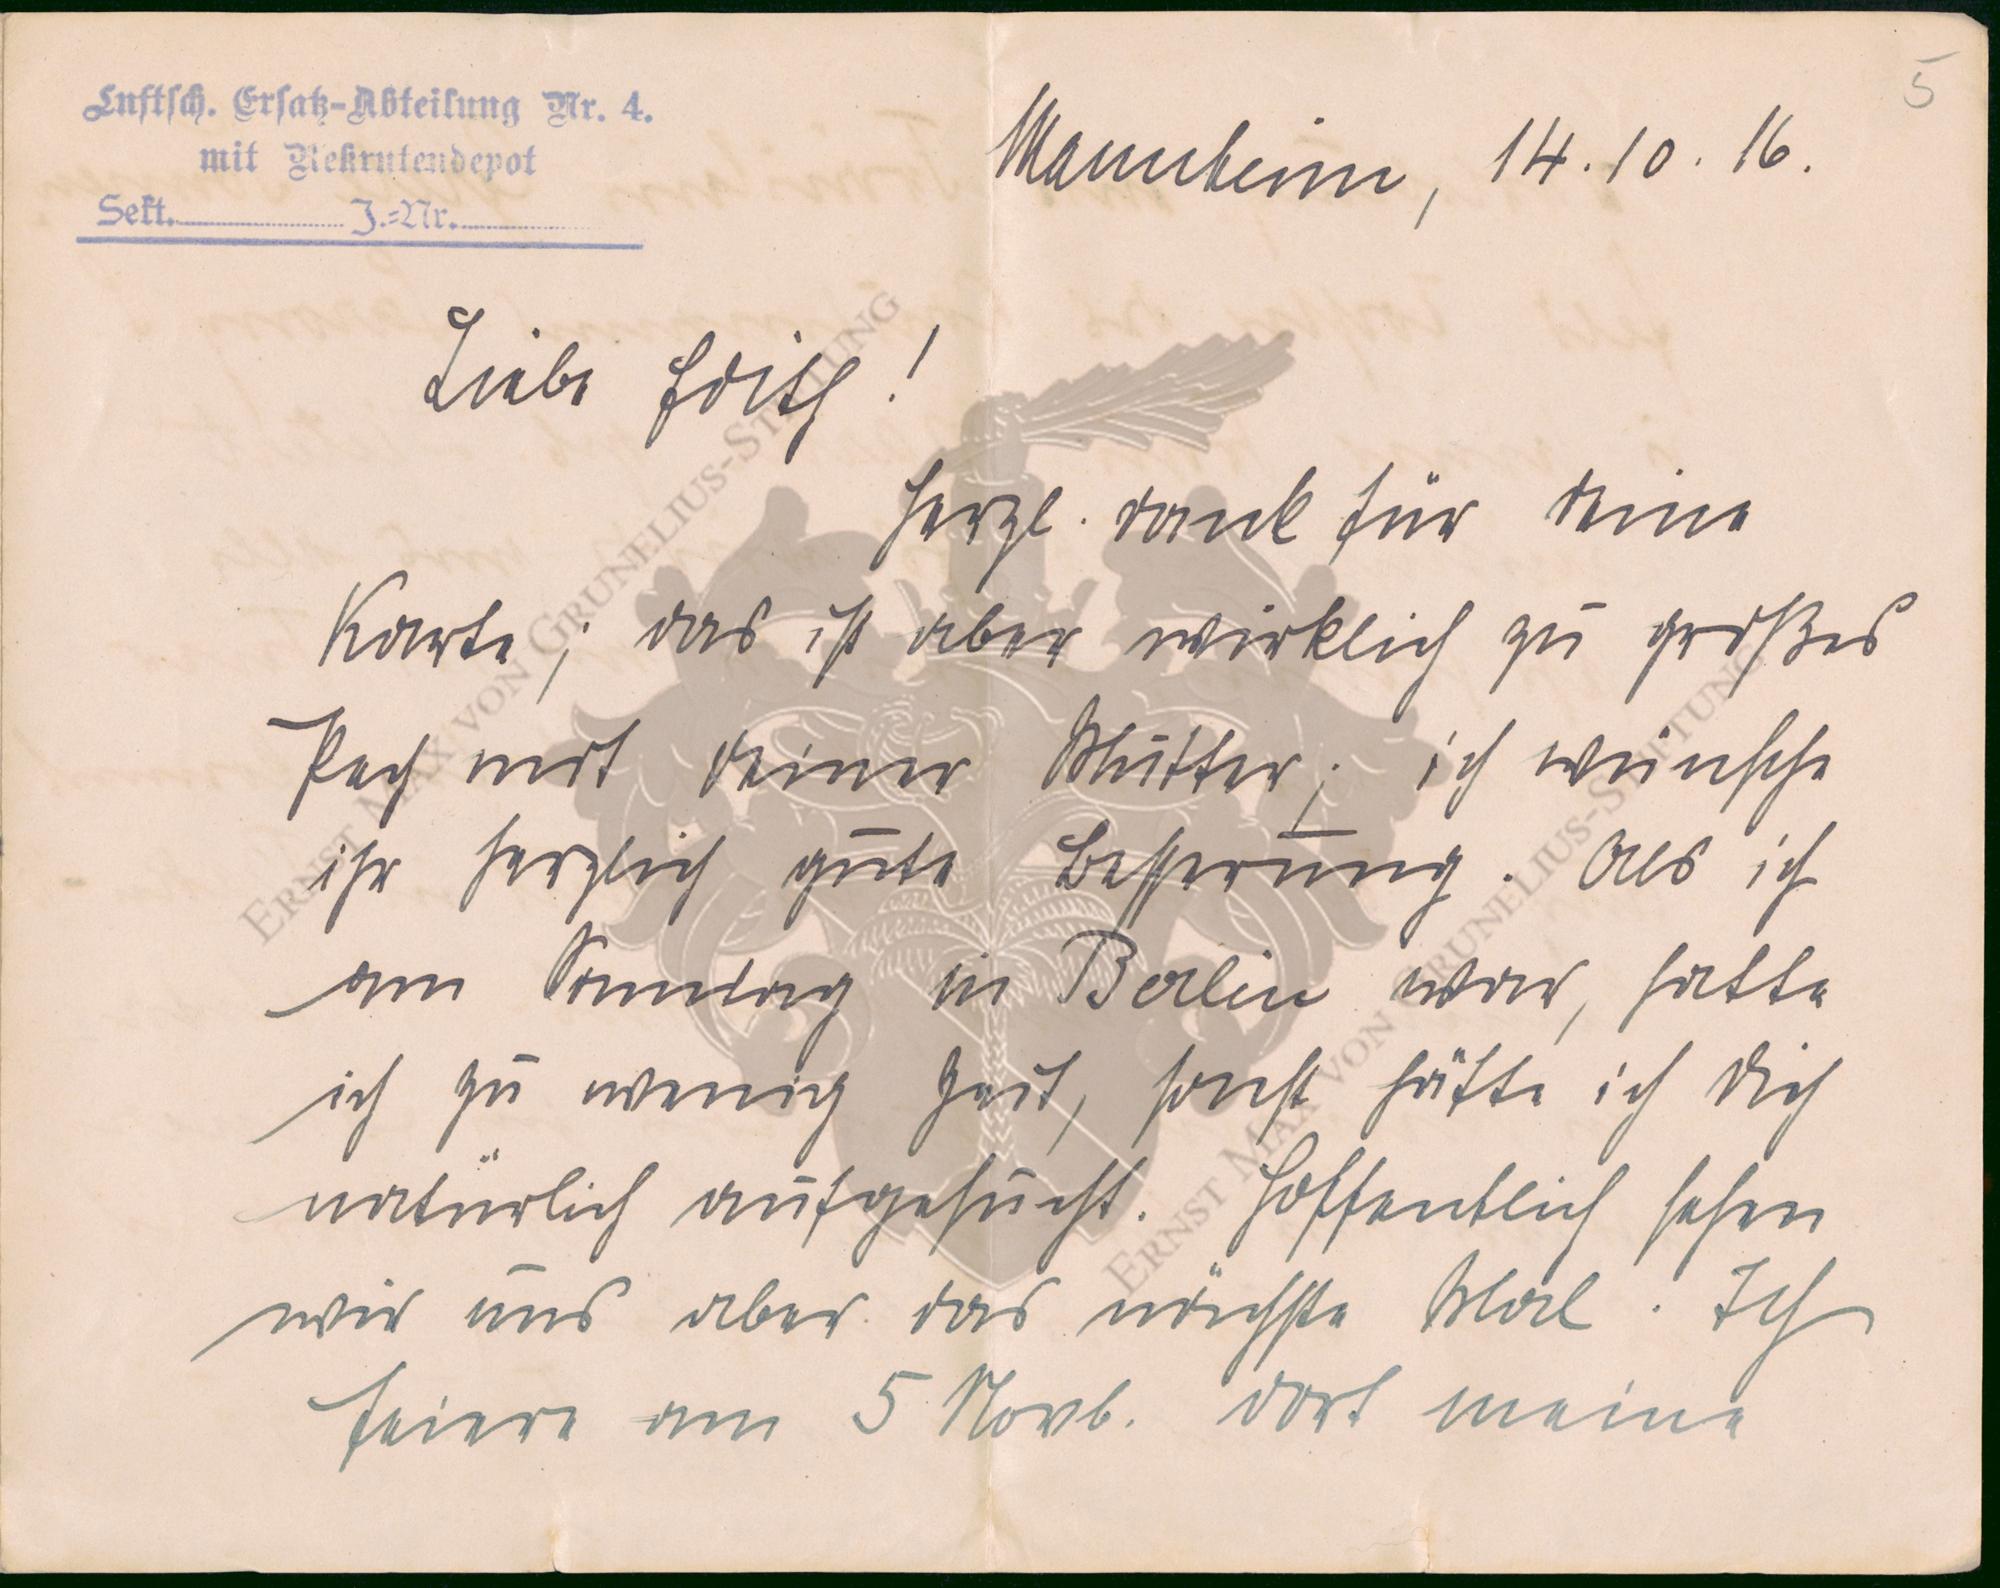 5
Luftsch. Ersatz-Abteilung Nr. 4.
mit Rekrutendepot
Sekt. J.-Nr.
Mannheim, 14.10.16.
Liebe Edith!
Herzl. Dank für Deine
Karte; das ist aber wirklich zu großes
Pech mit Deiner Mutter; ich wünsche
ihr herzlich gute Besserung. Als ich
am Sonntag in Berlin war, hatte
ich zu wenig Zeit, sonst hätte ich Dich
natürlich aufgesucht. Hoffentlich sehen
wir uns aber das nächste Mal. Ich
feiere am 5 Novb. dort meine
ERNST MAX VON GRUNELIUS-STIFTUNG
ERNST MAX VON GRUNELIUS-STIFTUNG